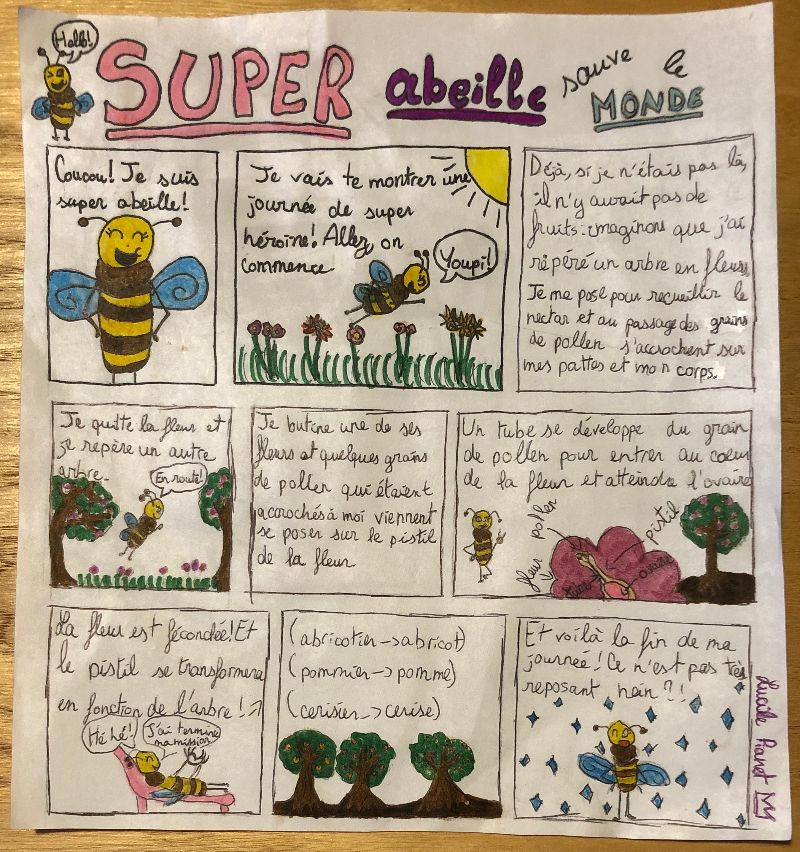 Hello!
SUPER abeille sauve le MONDE
Coucou! Je suis
super abeille!
Je vais te montrer une
journée de super
héroïne! Allez, on
commence
Youpi!
Déjà, si je n'étais pas là,
il n'y aurait pas de
fruits: imaginons que j'ai
répéré un arbre en fleurs
Je me pose pour recueillir le
nectar et au passage des grains
de pollen s'accrochent sur
mes pattes et mon corps.
Je quitte la fleur et
je repère un autre
arbre.
En route!
Je butine une de ses
fleurs et quelques grains
de pollen qui étaient
accrochés à moi viennent
se poser sur le pistil
de la fleur
Un tube se développe du grain
de pollen pour entrer au coeur
de la fleur et atteindre l'ovaire
fleur
pollen
pistil
tube
ovaire
La fleur est fécondée! Et
le pistil se transformera
en fonction de l'arbre! →
Hé hé!
J'ai terminé
ma mission
(abricotier → abricot)
(pommier → pomme)
(cerisier → cerise)
Et voilà la fin de ma
journée! Ce n'est pas très
reposant hein?!
Lucile Pianet